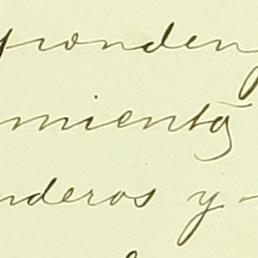 sponden
miento
nderos y-